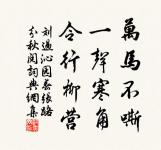 萬馬不嘶
一聲寒角
令行柳營
劉過沁園春張路
分秋閱詞典網集